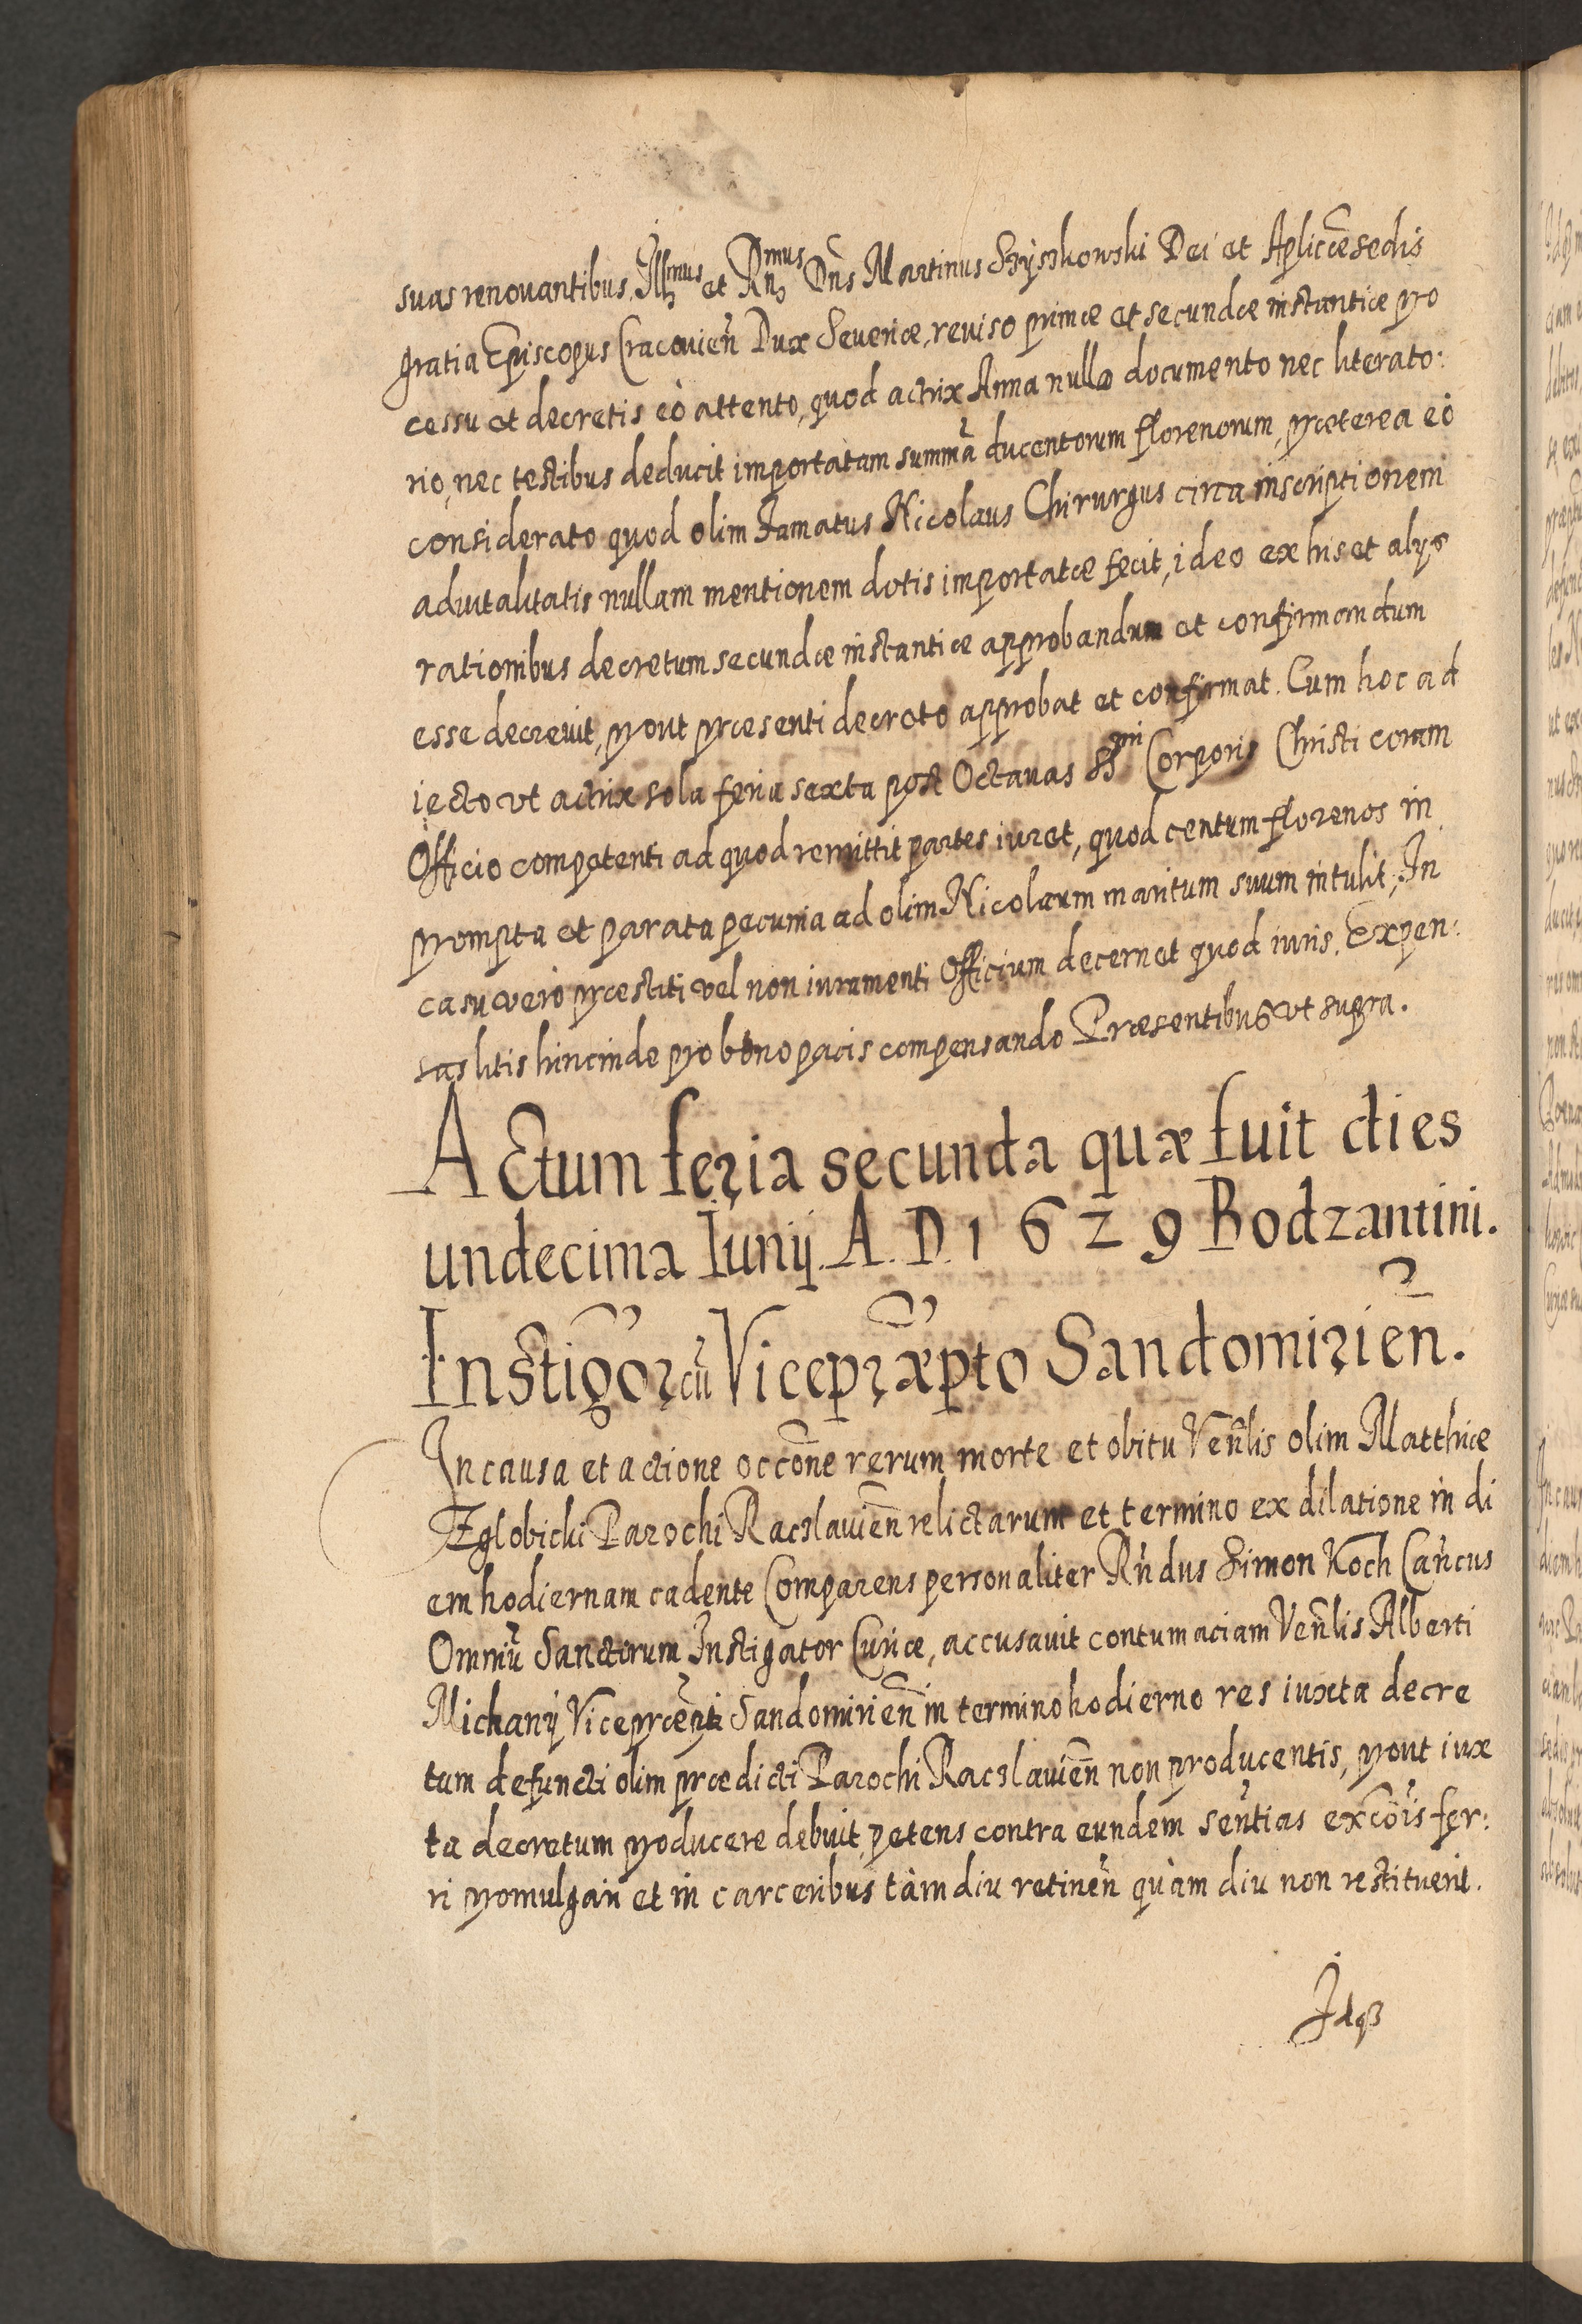 suas renouantibus. Illmus et Rnmus Dns Martinus Szyszkowski Dei et Aplicæ sedis
gratia Episcopus Cracouien Dux Seueriæ, reuiso primæ et secundæ instantiæ pro
cessu et decretis eò attento, quod actrix Anna nullo documento nec literato:
rio, nec testibus deducit importatam summã ducentorum florenorum, præterea eò
considerato quod olim Famatus Nicolaus Chirurgus circa inscriptionem
aduitalitatis nullam mentionem dotis importatæ fecit, ideo ex his et alijs
rationibus decretum secundæ instantiæ approbandum et confirmandum
esse decreuit, prout præsenti decreto approbat et confirmat. Cum hoc ad
iecto vt actrix sola feria sexta post Octauas SSmi Corporis Christi coram
Officio competenti ad quod remittit partes iuret, quod centum florenos in
prompta et parata pecunia ad olim Nicolaum maritum suum intulit, In
casu vero præstiti vel non iuramenti Officium decernet quod iuris. Expen:
sas litis hincinde pro bono pacis compensando Præsentibus vt supra.
Actum feria secunda quæ fuit dies
undecima Iunij. A. D. 1629 Bodzantini.
Instigor cũ Vicepræpto Sandomirien.
In causa et actione occõne rerum morte et obitu Venlis olim Matthiæ
Zglobicki Parochi Racslauien relictarum et termino ex dilatione in di
em hodiernam cadente Comparens personaliter Rndus Simon Koch Cancus
Omniũ Sanctorum Instigator Curiæ, accusauit contumaciam Venlis Alberti
Michanij Vicepræpti Sandomirien in termino hodierno res iuxta decre
tum defuncti olim prædicti Parochi Racslauien non producentis, prout iux
ta decretum producere debuit, petens contra eundem sentias excõis fer:
ri promulgari et in carceribus tàm diu retineri quàm diu non restituerit.
Idqȝ